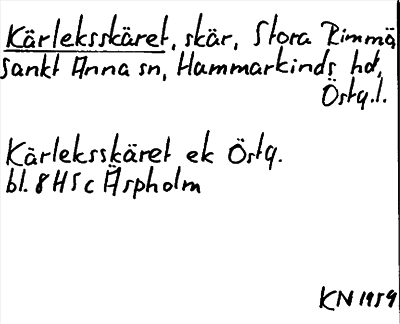 Kärleksskäret, skär, Stora Rimmö
Sankt Anna sn, Hammarkinds hd,
Östg.l.
Kärleksskäret ek Östg.
bl. 8 H5c Äspholm
KN 1959